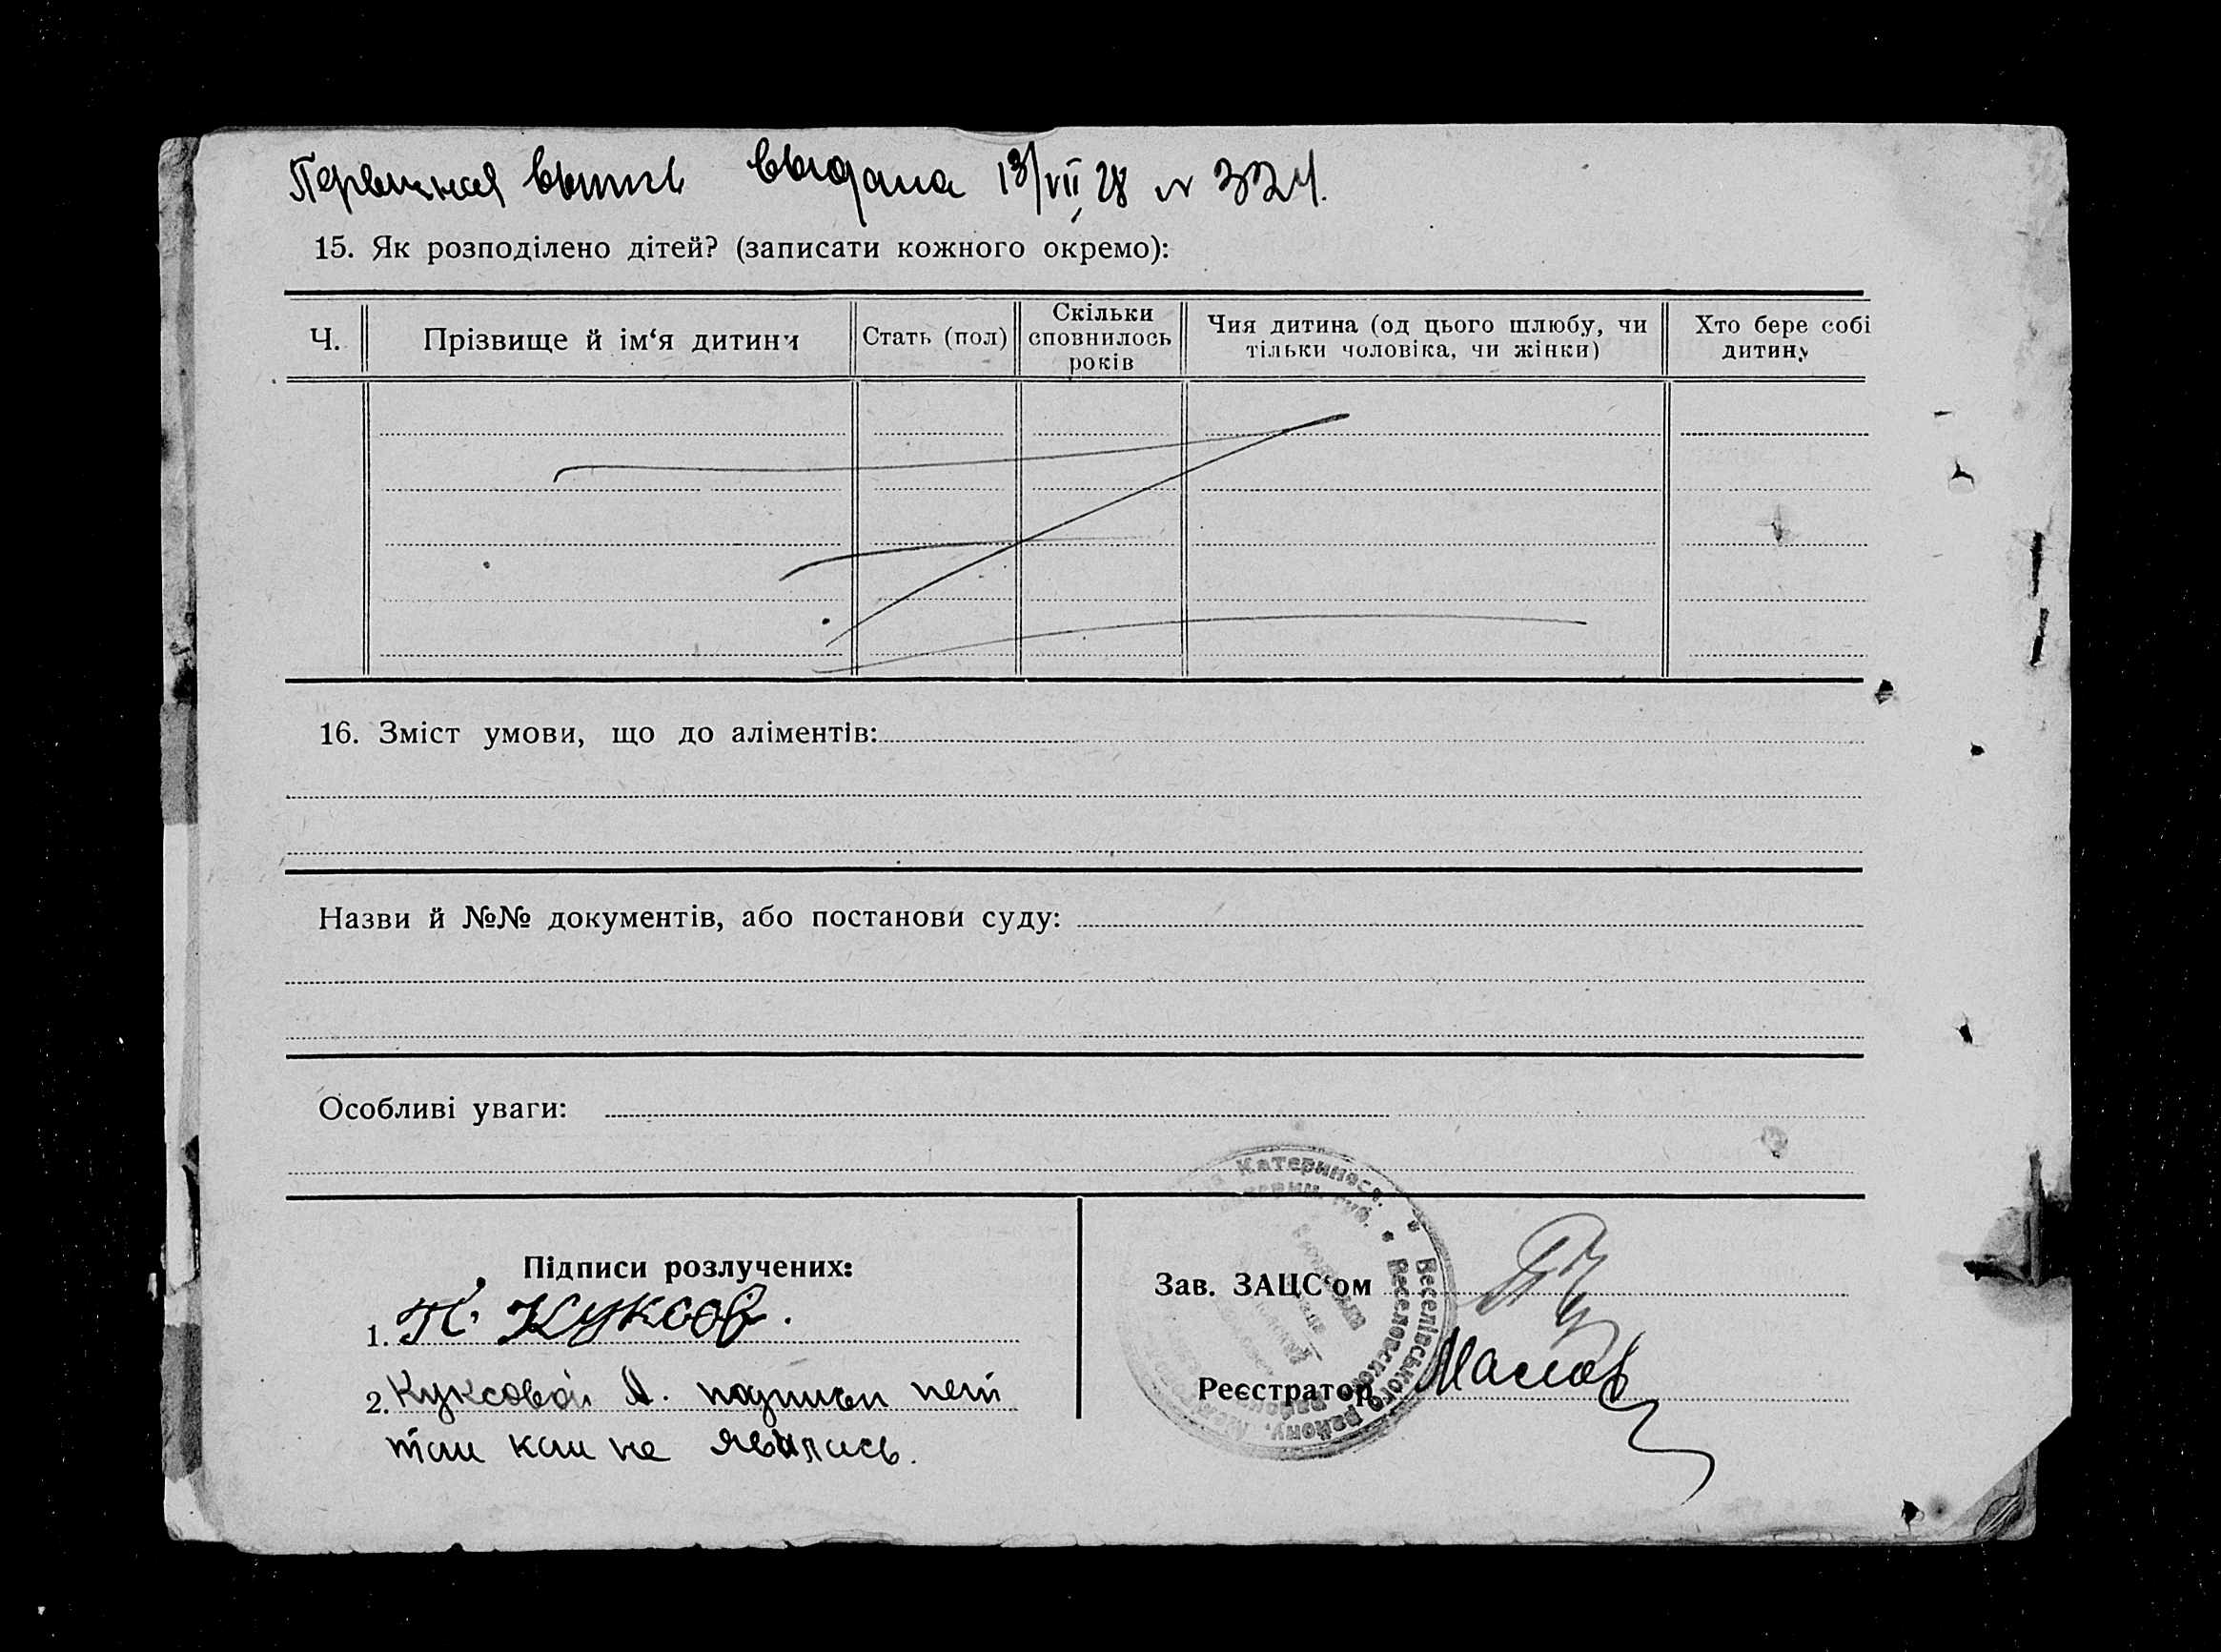 Первичная выпись выдана 13/VII 28 N 324.
15. Як розподілено дітей? (записати кожного окремо):
Ч.
Прізвище й ім‘я дитини
Стать (пол)
Скільки
сповнилось
років
Чия дитина (од цього шлюбу, чи
тільки чоловіка, чи жінки)
Хто бере собі
дитину
16. Зміст умови, що до аліментів:
Назви й №№ документів, або постанови суду:
Особливі уваги:
Підписи розлучених:
1. Куксов.
2. Куксовой А. подписи нет
так как не явилась.
Зав. ЗАЦС‘ом
Реєстратор Маслов
Катеринос.
Веселівського району,
Веселовского района